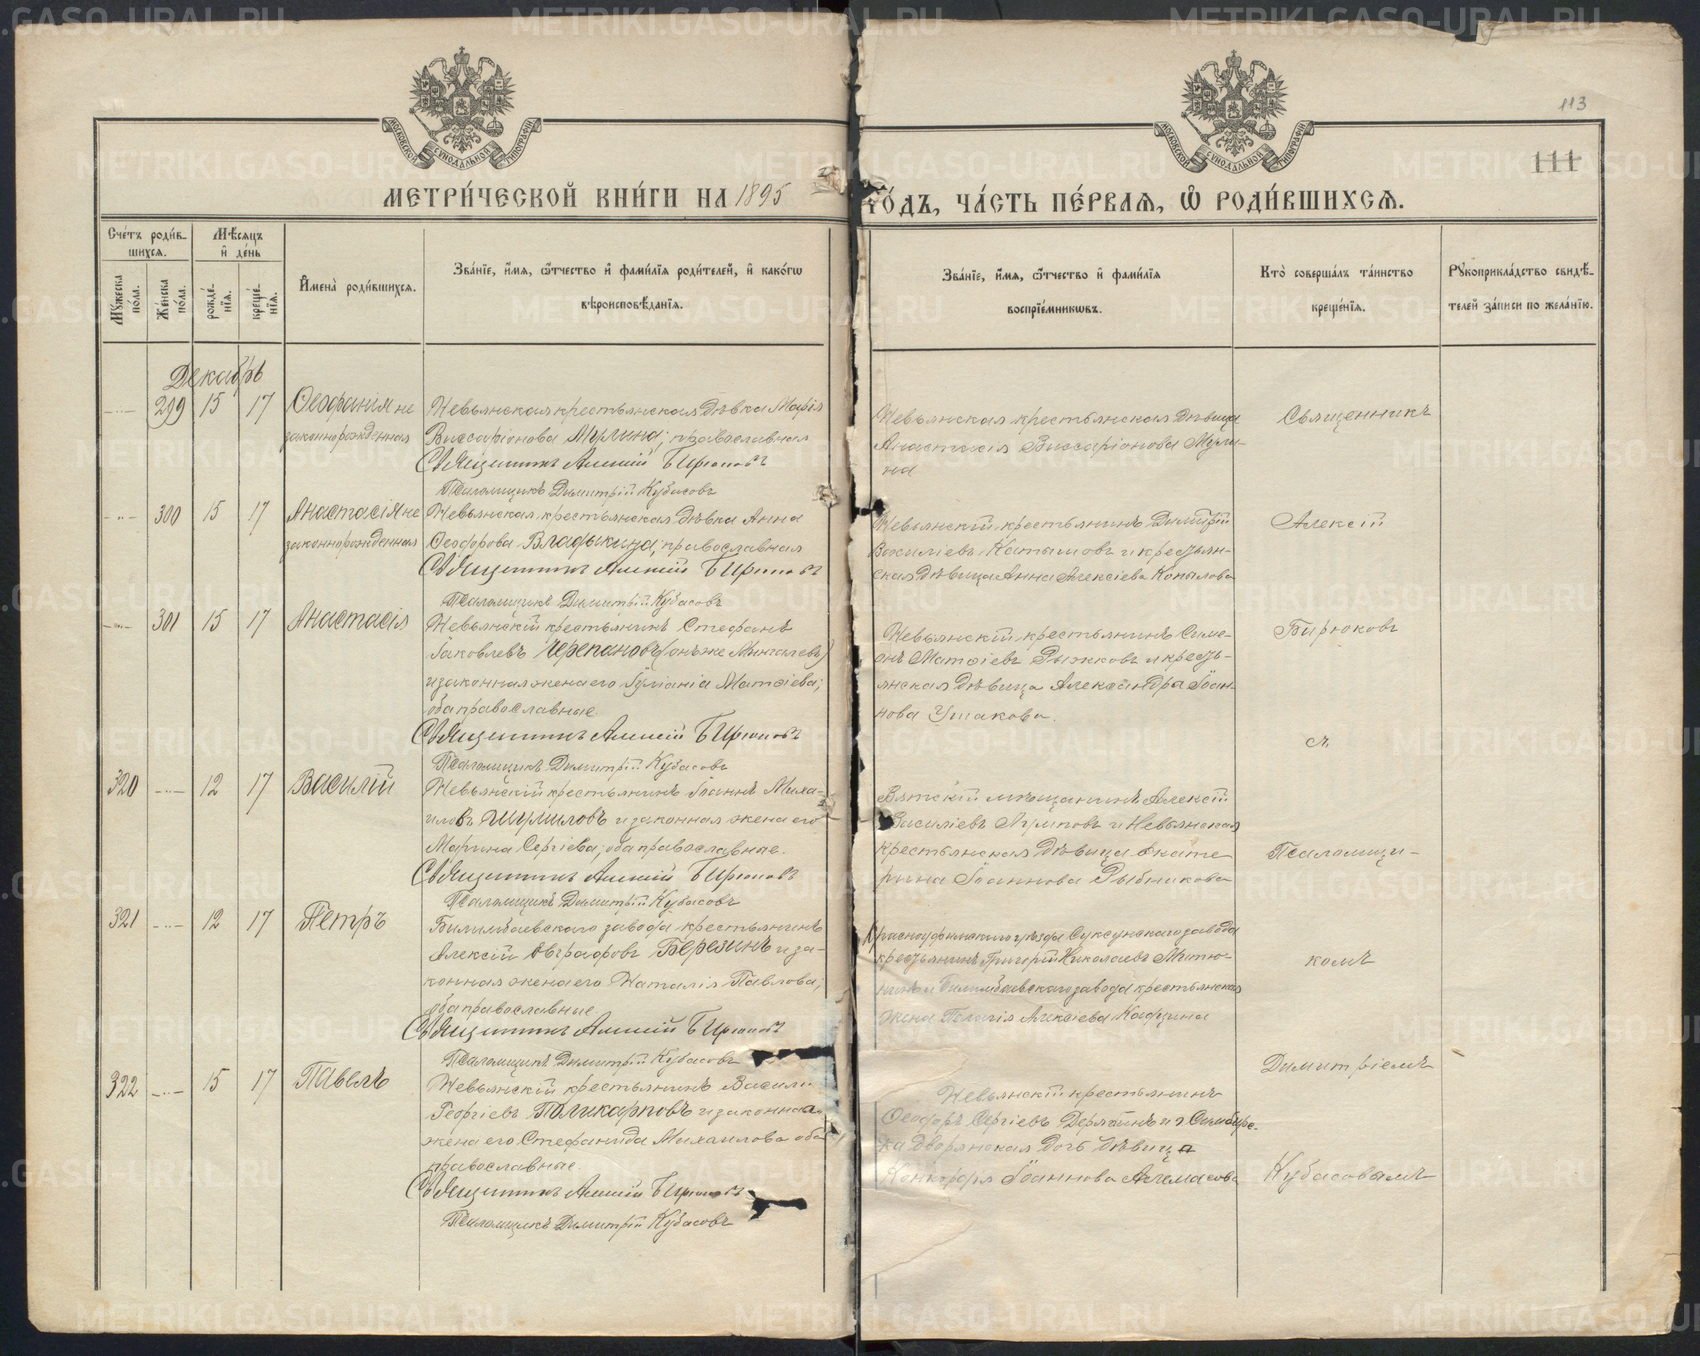 113
111
МЕТРИ́ЧЕСКОЙ КНИ́ГИ НА 1895
ГО́ДЪ, ЧА́СТЬ ПЕ́РВАЯ, Ѡ҆ РОДИ́ВШИХСЯ.
МОСКОВСКОЙ СѴНОДАЛЬНОЙ ТИПОГРАФІИ
МОСКОВСКОЙ СѴНОДАЛЬНОЙ ТИПОГРАФІИ
Сче́тъ роди́в-
шихся.
Мꙋ́жеска по́ла.
Же́нска по́ла.
Мѣ́сяцъ
и҆ де́нь
рожде́нїя.
креще́нїя.
И҆мена̀ роди́вшихся.
Зва́нїе, и҆́мя, ѻ҆́тчество и҆ фами́лїя роди́телей, и҆ како́гѡ
вѣроисповѣ́данїя.
Зва́нїе, и҆́мя, ѻ҆́тчество и҆ фами́лїя
воспрїе́мникѡвъ.
Кто̀ соверша́лъ та́инство
креще́нїя.
Рꙋкоприкла́дство свидѣ́-
телей за́писи по жела́нїю.
Декабрь
299 15 17 Ѳеофанія не
законнорожденная
Невьянская крестьянская дѣвка Марія
Виссаріонова Мурина; православная
Священникъ Алексій Бирюковъ
Псаломщикъ Димитрій Кубасовъ
Невьянская крестьянская дѣвица
Анастасія Виссаріонова Мури-
на
Священникъ
300 15 17 Анастасія не
законнорожденная
Невьянская крестьянская дѣвка Анна
Ѳеодорова Владыкина; православная
Священникъ Алексій Бирюковъ
Псаломщикъ Димитрій Кубасовъ
Невьянскій крестьянинъ Димитрій
Василіевъ и крестьян-
ская дѣвица Анна Алексіева Копылова
Алексій
301 15 17 Анастасія
Невьянскій крестьянинъ Стефанъ
Іаковлевъ Черепановъ (онъ же Мингалевъ)
и законная жена его Іуліанія Матѳіева;
оба православные.
Священникъ Алексій Бирюковъ
Псаломщикъ Димитрій Кубасовъ
Невьянскій крестьянинъ Симе-
онъ Матѳіевъ Рыжковъ и кресть-
янская дѣвица Александра Іоан-
нова Ушакова.
Бирюковъ
съ
320 12 17 Василій
Невьянскій крестьянинъ Іоаннъ Миха-
иловъ Шумиловъ и законная жена его
Марина Сергіева; оба православные.
Священникъ Алексій Бирюковъ
Псаломщикъ Димитрій Кубасовъ
Вятскій мѣщанинъ Алексій
Василіевъ и Невьянская
крестьянская дѣвица Екате-
рина Іоаннова Рыбникова
Псаломщи-
321 12 17 Петръ
Билимбаевскаго завода крестьянинъ
Алексій Евграфовъ Березинъ и за-
конная жена его Наталія Павлова,
оба православные
Священникъ Алексій Бирюковъ
Псаломщикъ Димитрій Кубасовъ
Красноуфимскаго уѣзда Суксунскаго завода
крестьянинъ Григорій Николаевъ Митю-
нинъ и Билимбаевскаго завода крестьянская
жена Пелагія Алексіева
комъ
322 15 17 Павелъ
Невьянскій крестьянинъ Васили
Георгіевъ Поликарповъ и законная
жена его Стефанида Михаилова оба
православные
Священникъ Алексій Бирюковъ
Псаломщикъ Димитрій Кубасовъ
Невьянскій крестьянинъ
Ѳеодоръ Сергіевъ и г. Симбирс-
ка дворянская дочь дѣвица
Конкордія Іоаннова
Димитріемъ
Кубасовымъ
METRIKI.GASO-URAL.RU